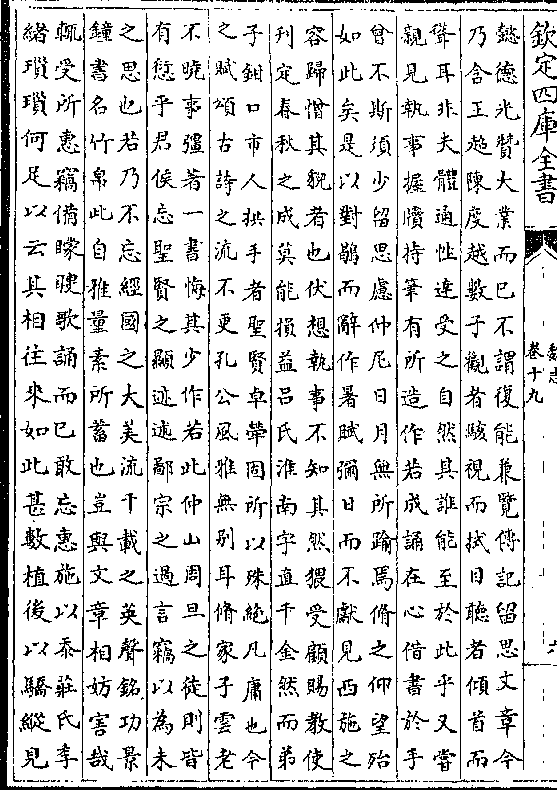 欽定四庫全書
魏志
卷十九
懿德光贊大業而已不謂復能兼覽傳記留思文章今
乃含王超陳度越數子觀者駭視而拭目聽者傾首而
聳耳非夫體通性達受之自然其誰能至於此乎又嘗
親見執事握牘持筆有所造作若成誦在心借書於手
曾不斯須少留思慮仲尼日月無所踰焉脩之仰望殆
如此矣是以對鶡而辭作暑賦彌日而不獻見西施之
容歸憎其貌者也伏想執事不知其然猥受顧賜教使
刋定春秋之成莫能損益呂氏淮南字直千金然而弟
子鉗口市人拱手者聖賢卓犖固所以殊絕凡庸也今
之賦頌古詩之流不更孔公風雅無別耳脩家子雲老
不曉事彊著一書悔其少作若此仲山周旦之徒則皆
有愆乎君侯忘聖賢之顯迹述鄙宗之過言竊以為未
之思也若乃不忘經國之大美流千載之英聲銘功景
鐘書名竹帛此自雅量素所蓄也豈與文章相妨害哉
輒受所惠竊備矇瞍歌誦而已敢忘惠施以忝莊氏季
緒瑣瑣何足以云其相往來如此甚數植後以驕縱見